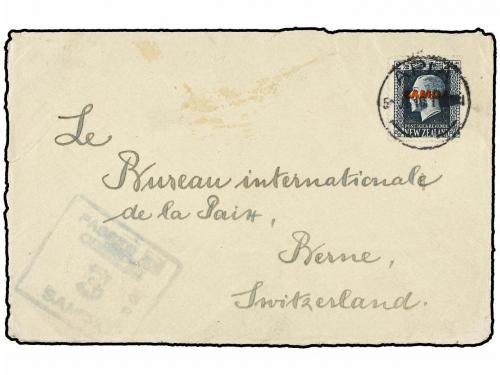 SAMOA
POSTAGE & REVENUE
NEW ZEALAND
Le
Bureau internationale
de la Paix,
Berne,
Switzerland.
PASSED BY
3
SAMOA